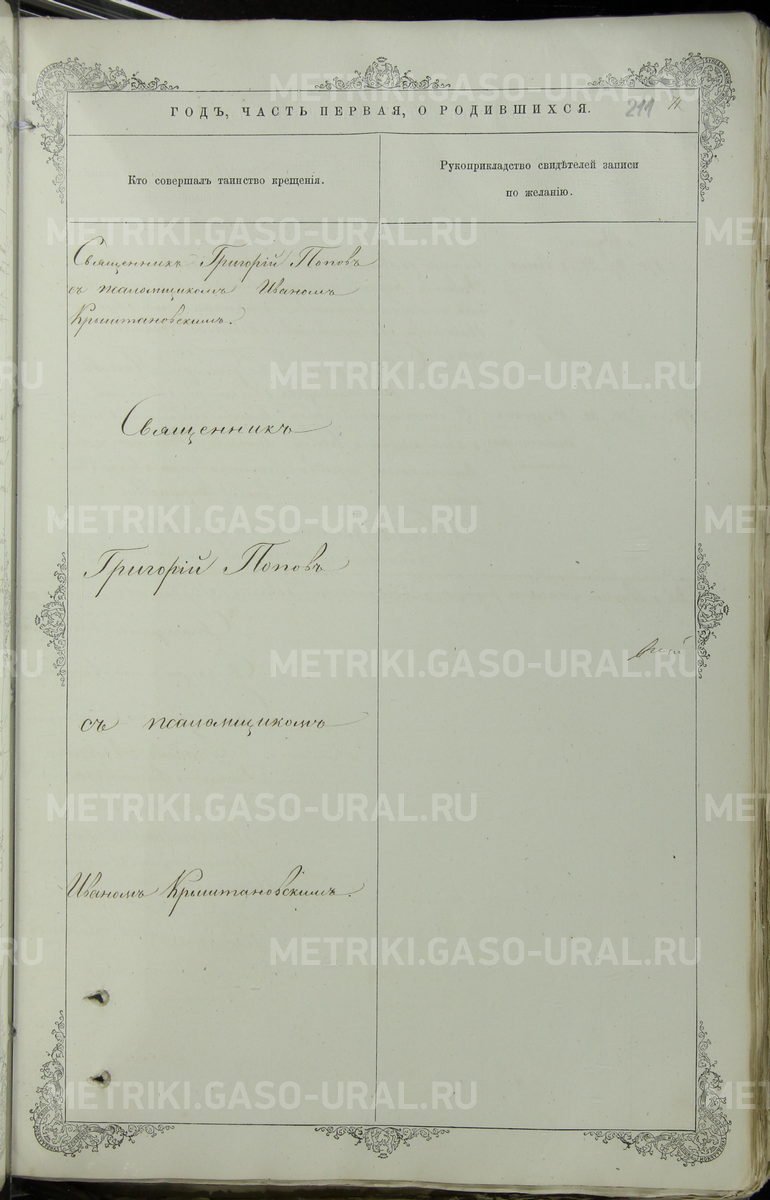 ГОДЪ, ЧАСТЬ ПЕРВАЯ, О РОДИВШИХСЯ.
211
11
Кто совершалъ таинство крещенія.
Рукоприкладство свидѣтелей записи
по желанію.
Священникъ Григорій Поповъ
съ псаломщикомъ Иваномъ
Крыштановскимъ.
Священникъ
Григорій Поповъ
съ псаломщикомъ
Иваномъ Крыштановскимъ.
METRIKI.GASO-URAL.RU